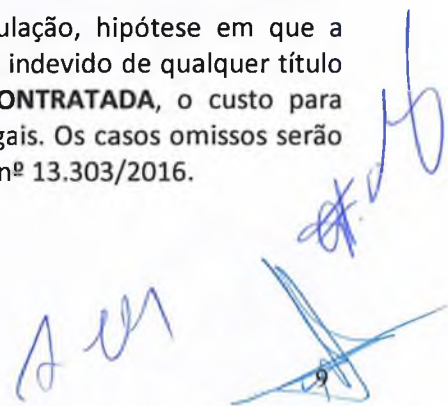 ulação, hipótese em que a
indevido de qualquer título
ONTRATADA, o custo para
gais. Os casos omissos serão
nº 13.303/2016.
9